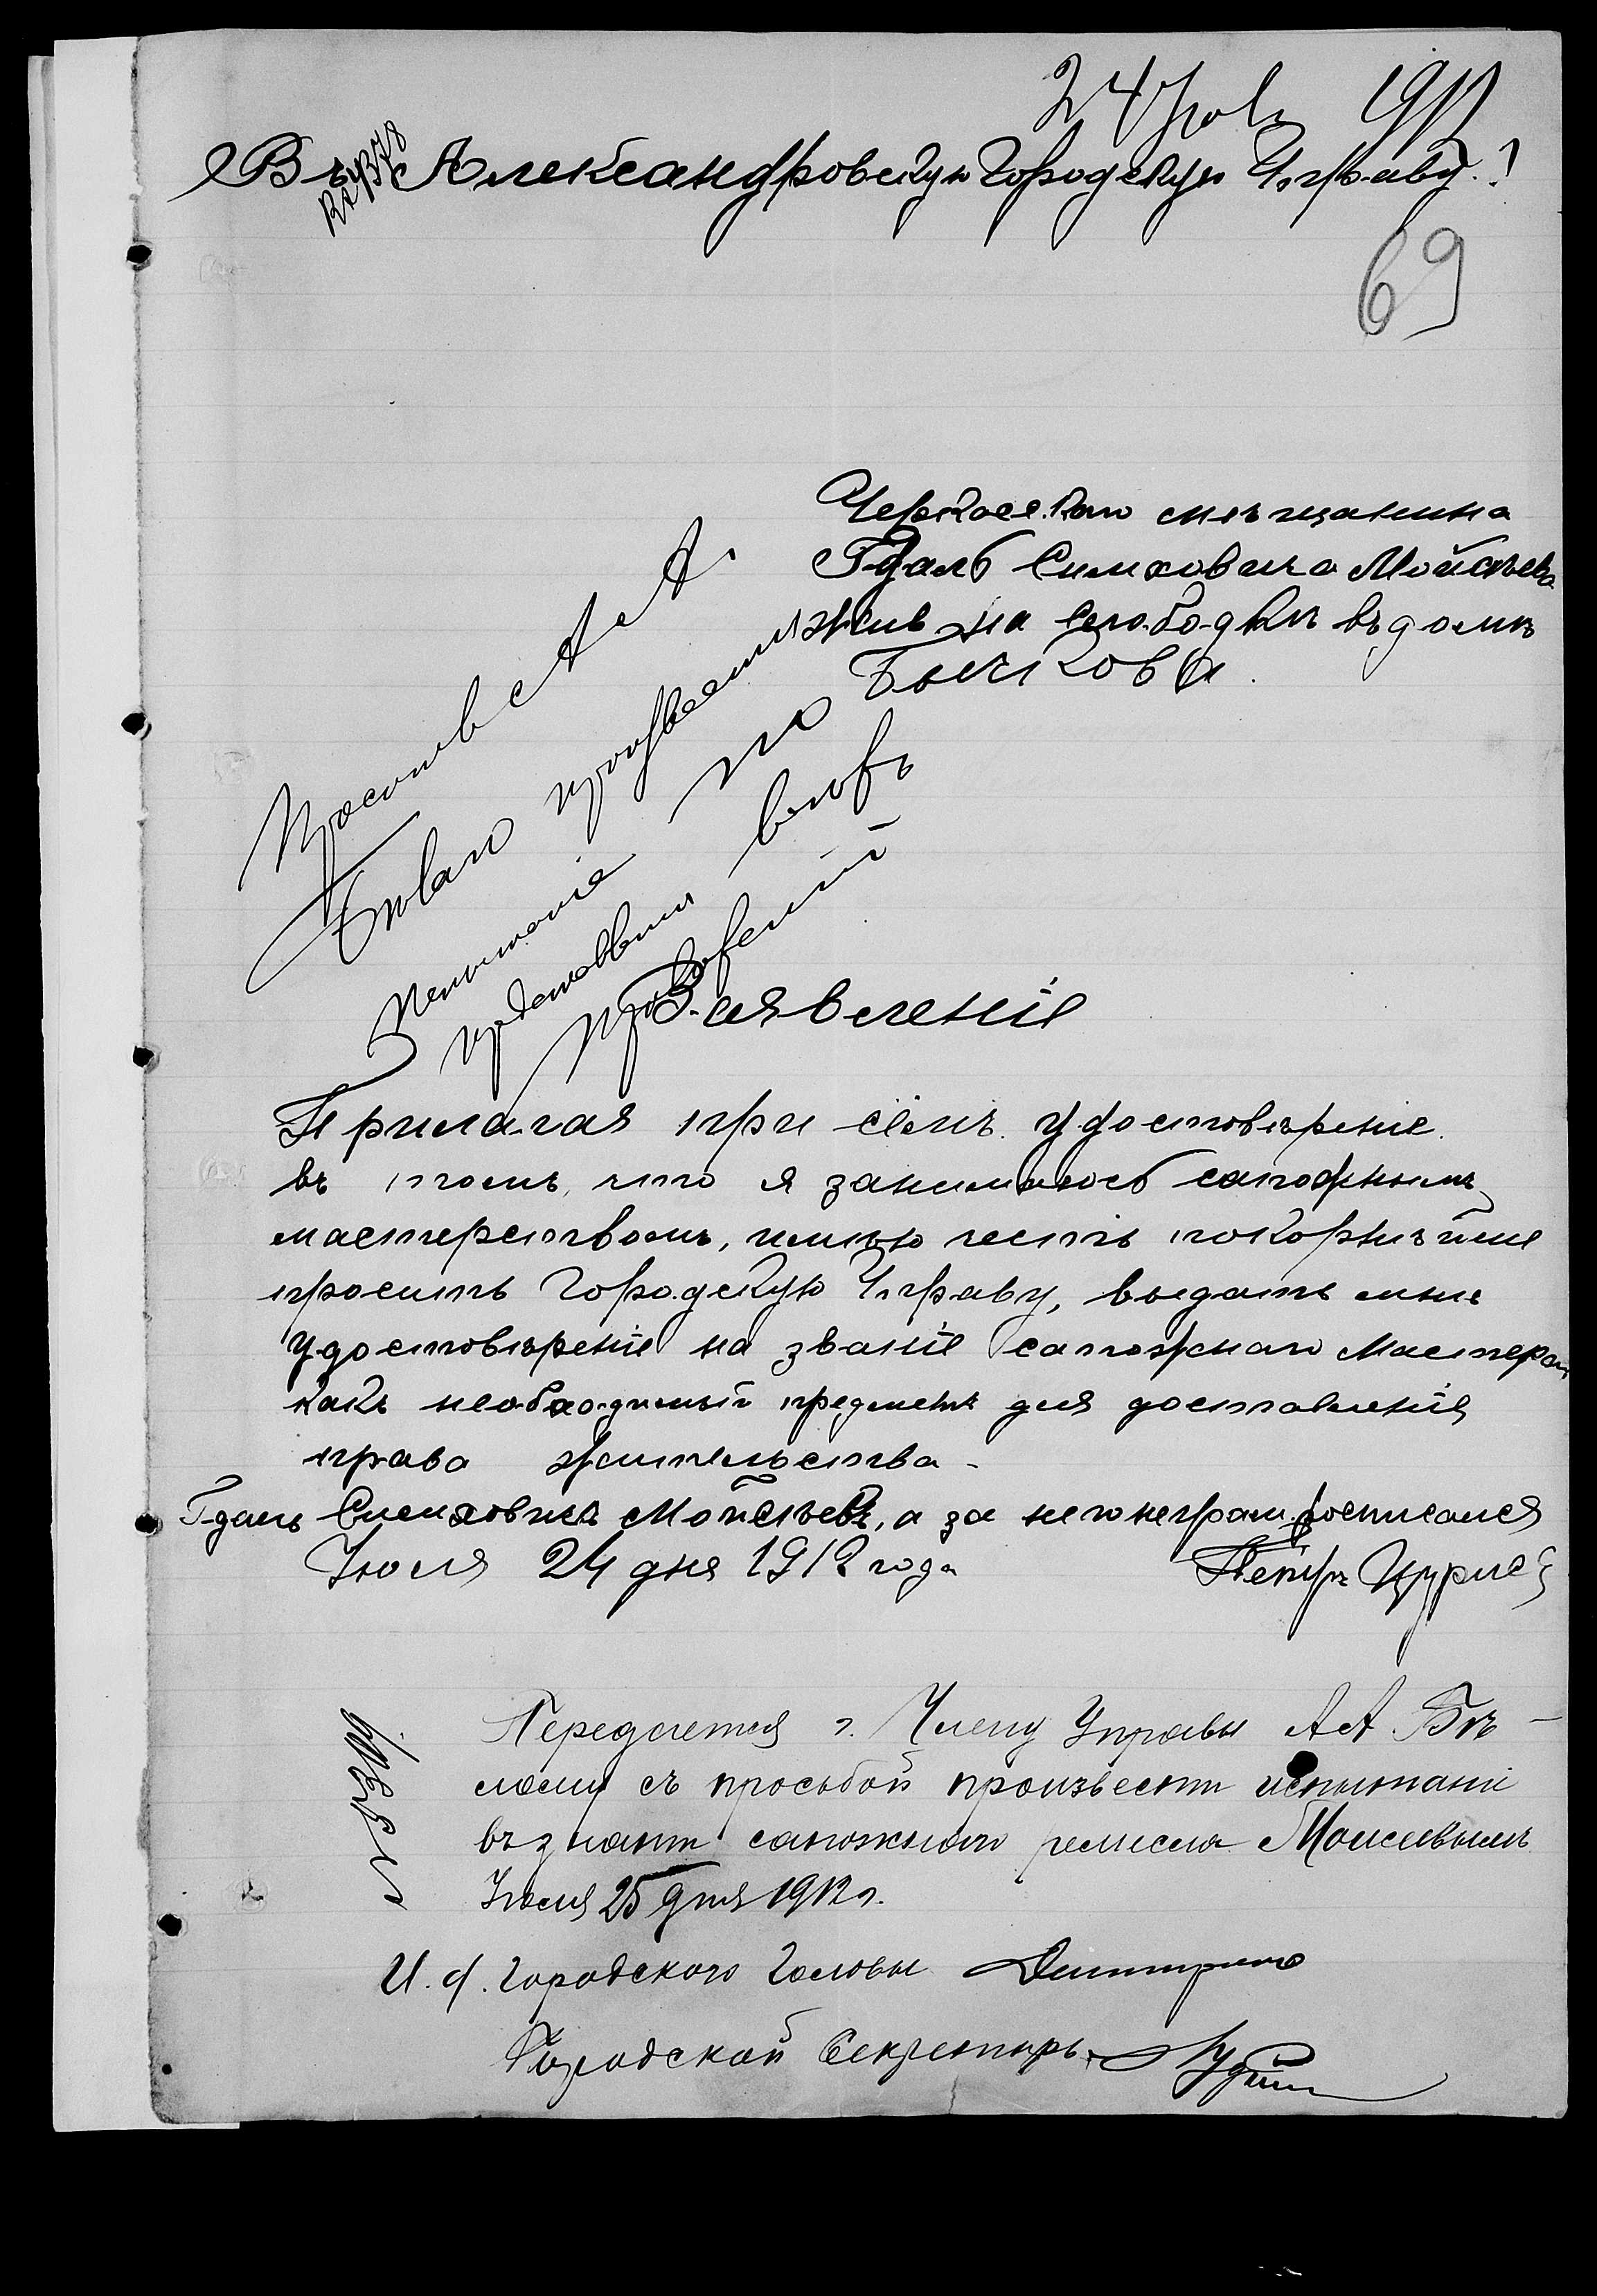 24 июля 1912
Въ Александровскую Городскую Управу.!
69
Черкасскаго мѣщанина
Гдаль Симховича Мойсѣева
жив на слободкѣ въ домѣ
Бычкова.
Просить А. А.
Бѣлаго произвести
испытаніе по
предоставленіи
Заявленіе
Прилагая при сёмъ удостовѣреніе
въ томъ, что я занимаюсь сапожнымъ
мастерствомъ, имѣю честь покорнѣйше
просить Городскую Управу, выдать мнѣ
удостовѣреніе на званіе сапожнаго мастера,
какъ необходимый предметъ для доставленія
права жительства.
Гдаль Симховичъ Мойсѣевъ, а за него неграм. росписался
Июля 24 дня 1912 года Петръ
Передается г. Члену Управы А А Бѣ-
лому съ просьбой произвести испытаніе
въ знаніи сапожнаго ремесла Моисеевымъ
Июля 25 дня 1912 г.
И. д. Городского Головы
Городской Секретарь